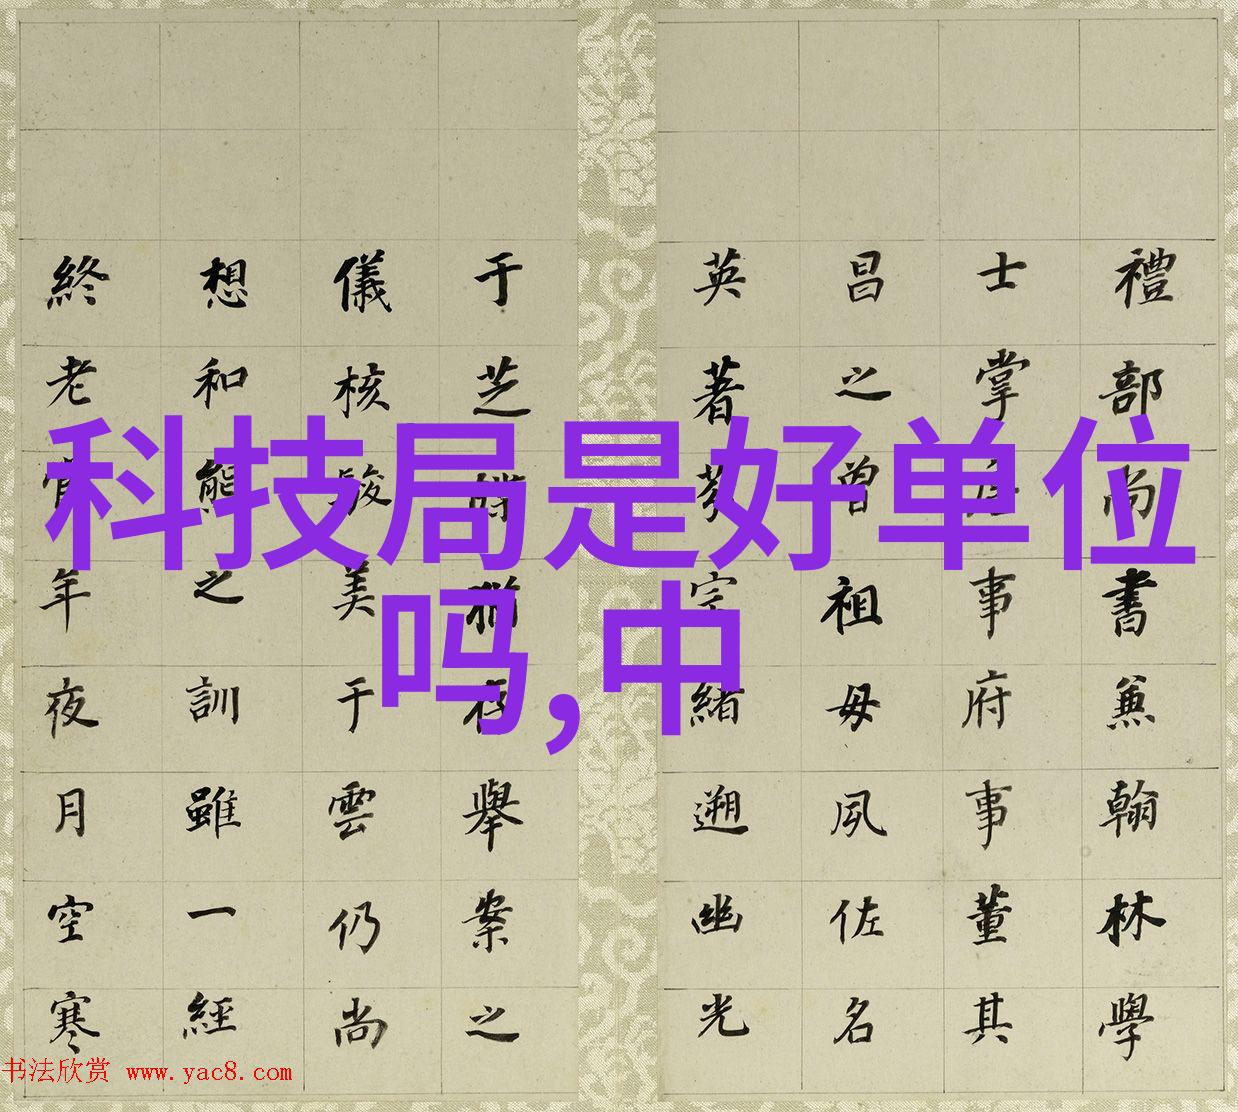 科技局是好单位
吗,中
禮部尚書兼翰林學
士掌事府事董其
昌之曾祖母夙佐名
英著宇緒遡幽光
于芝舉案之
儀核毓美于雲仍尚
想和熊之訓雖一經
終老年夜月空寒
书法欣赏 www.yac8.com